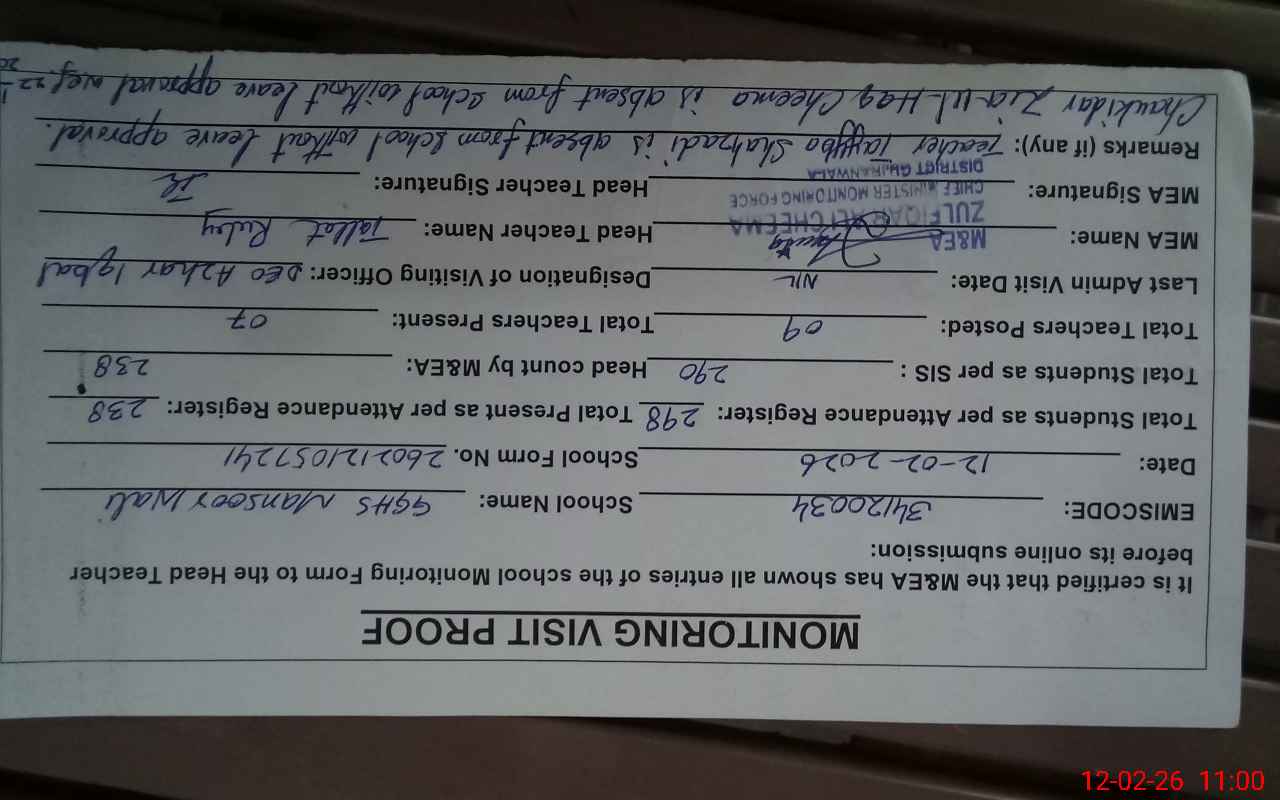 MONITORING VISIT PROOF
It is certified that the M&EA has shown all entries of the school Monitoring Form to the Head Teacher
before its online submission:
EMISCODE: 34120034 School Name: GGHS Mansoor Wali
Date: 12-02-2026 School Form No. 2602121057241
Total Students as per Attendance Register: 298 Total Present as per Attendance Register: 238
Total Students as per SIS : 290 Head count by M&EA: 238
Total Teachers Posted: 09 Total Teachers Present: 07
Last Admin Visit Date: NIL Designation of Visiting Officer: DEO Azhar Iqbal
MEA Name: Head Teacher Name: Tallat Ruby
MEA Signature: Head Teacher Signature:
M&EA
ZULFIQAR ALI CHEEMA
CHIEF MINISTER MONITORING FORCE
DISTRICT GUJRANWALA
Remarks (if any): Teacher Tayyba Shahzadi is absent from school without leave approval.
Chaukidar Zia-ul-Haq Cheema is absent from school without leave approval wef. 22
12-02-26 11:00